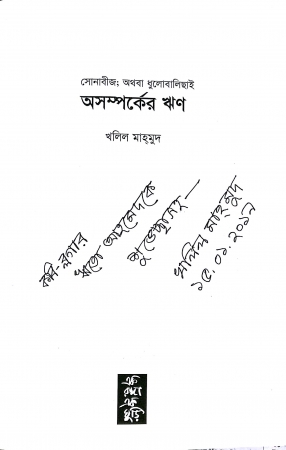 সোনাবীজ; অথবা ধুলোবালিছাই
অসম্পর্কের ঋণ
খলিল মাহ্‌মুদ
কবি-ব্লগার
আহমেদকে
শুভেচ্ছাসহ—
খলিল মাহ্‌মুদ
১৫.০১.২০১৭
এক
রঙ্গা
এক
ঘুড়ি